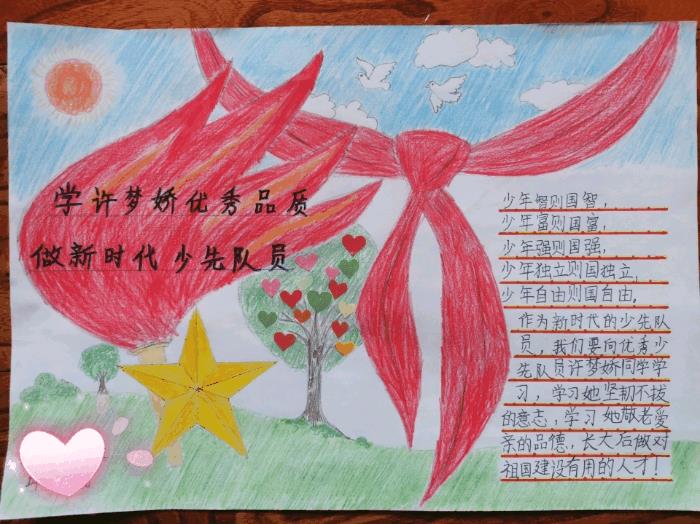 学许梦娇优秀品质
做新时代少先队员
少年智则国智，
少年富则国富，
少年强则国强，
少年独立则国独立，
少年自由则国自由。
作为新时代的少先队
员，我们要向优秀少
先队员许梦娇同学学
习，学习她坚韧不拔
的意志，学习她敬老爱
亲的品德，长大后做对
祖国建设有用的人才！